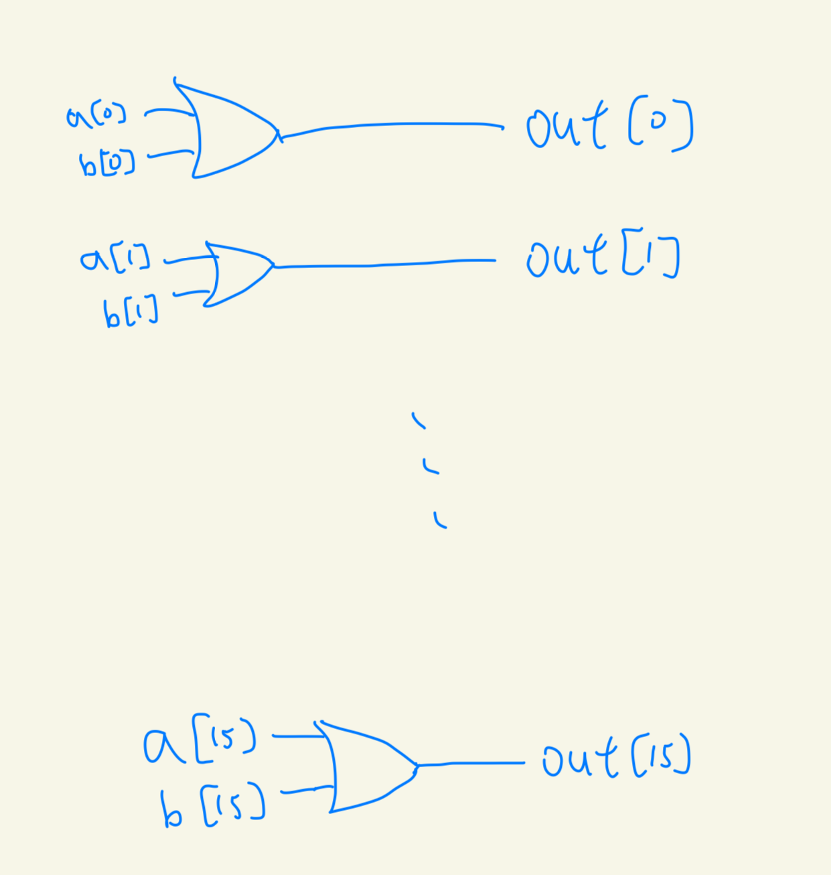 a[0]
b[0]
out[0]
a[1]
b[1]
out[1]
a[15]
b[15]
out[15]